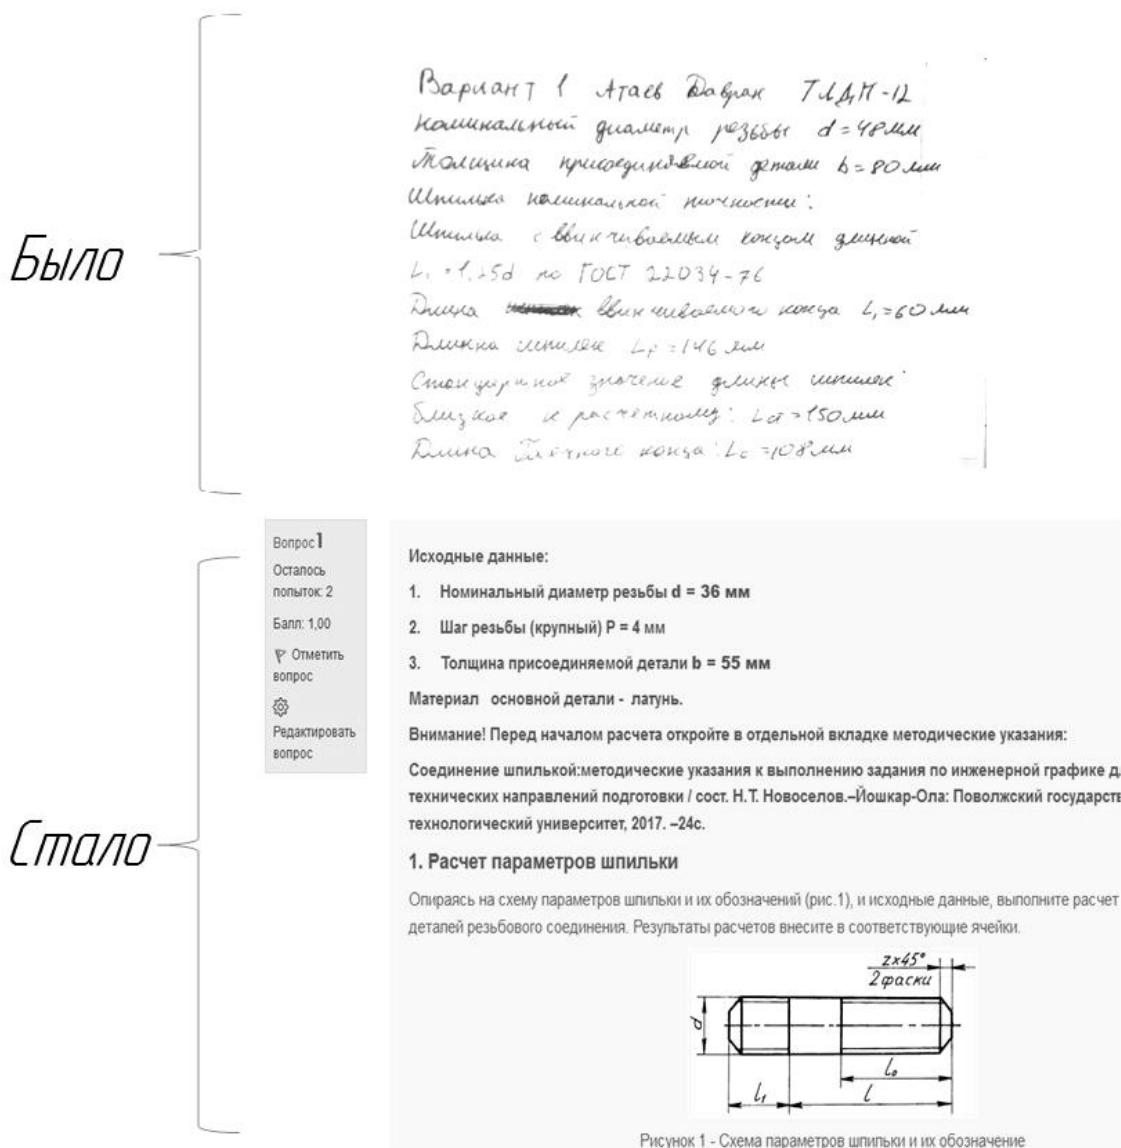 Было
Вариант 1 Атаев Давран ТЛДП-12
Номинальный диаметр резьбы d = 48 мм
Толщина присоединяемой детали b = 80 мм
Шпилька номинальной точности:
Шпилька с ввинчиваемым концом длинной
L₁ = 1,25d по ГОСТ 22034-76
Длина ввинчиваемого конца L₁ = 60 мм
Длинна шпилек Lр = 146 мм
Стандартное значение длины шпилек
близкое к расчетному: Lст = 150 мм
Длина конца: L₀ = 108 мм
Стало
Вопрос 1
Осталось
попыток: 2
Балл: 1,00
Отметить
вопрос
Редактировать
вопрос
Исходные данные:
1. Номинальный диаметр резьбы d = 36 мм
2. Шаг резьбы (крупный) P = 4 мм
3. Толщина присоединяемой детали b = 55 мм
Материал основной детали - латунь.
Внимание! Перед началом расчета откройте в отдельной вкладке методические указания:
Соединение шпилькой:методические указания к выполнению задания по инженерной графике д
технических направлений подготовки / сост. Н.Т. Новоселов.–Йошкар-Ола: Поволжский государств
технологический университет, 2017. –24с.
1. Расчет параметров шпильки
Опираясь на схему параметров шпильки и их обозначений (рис.1), и исходные данные, выполните расчет
деталей резьбового соединения. Результаты расчетов внесите в соответствующие ячейки.
z×45°
2 фаски
d
l₀
l₁
l
Рисунок 1 - Схема параметров шпильки и их обозначение